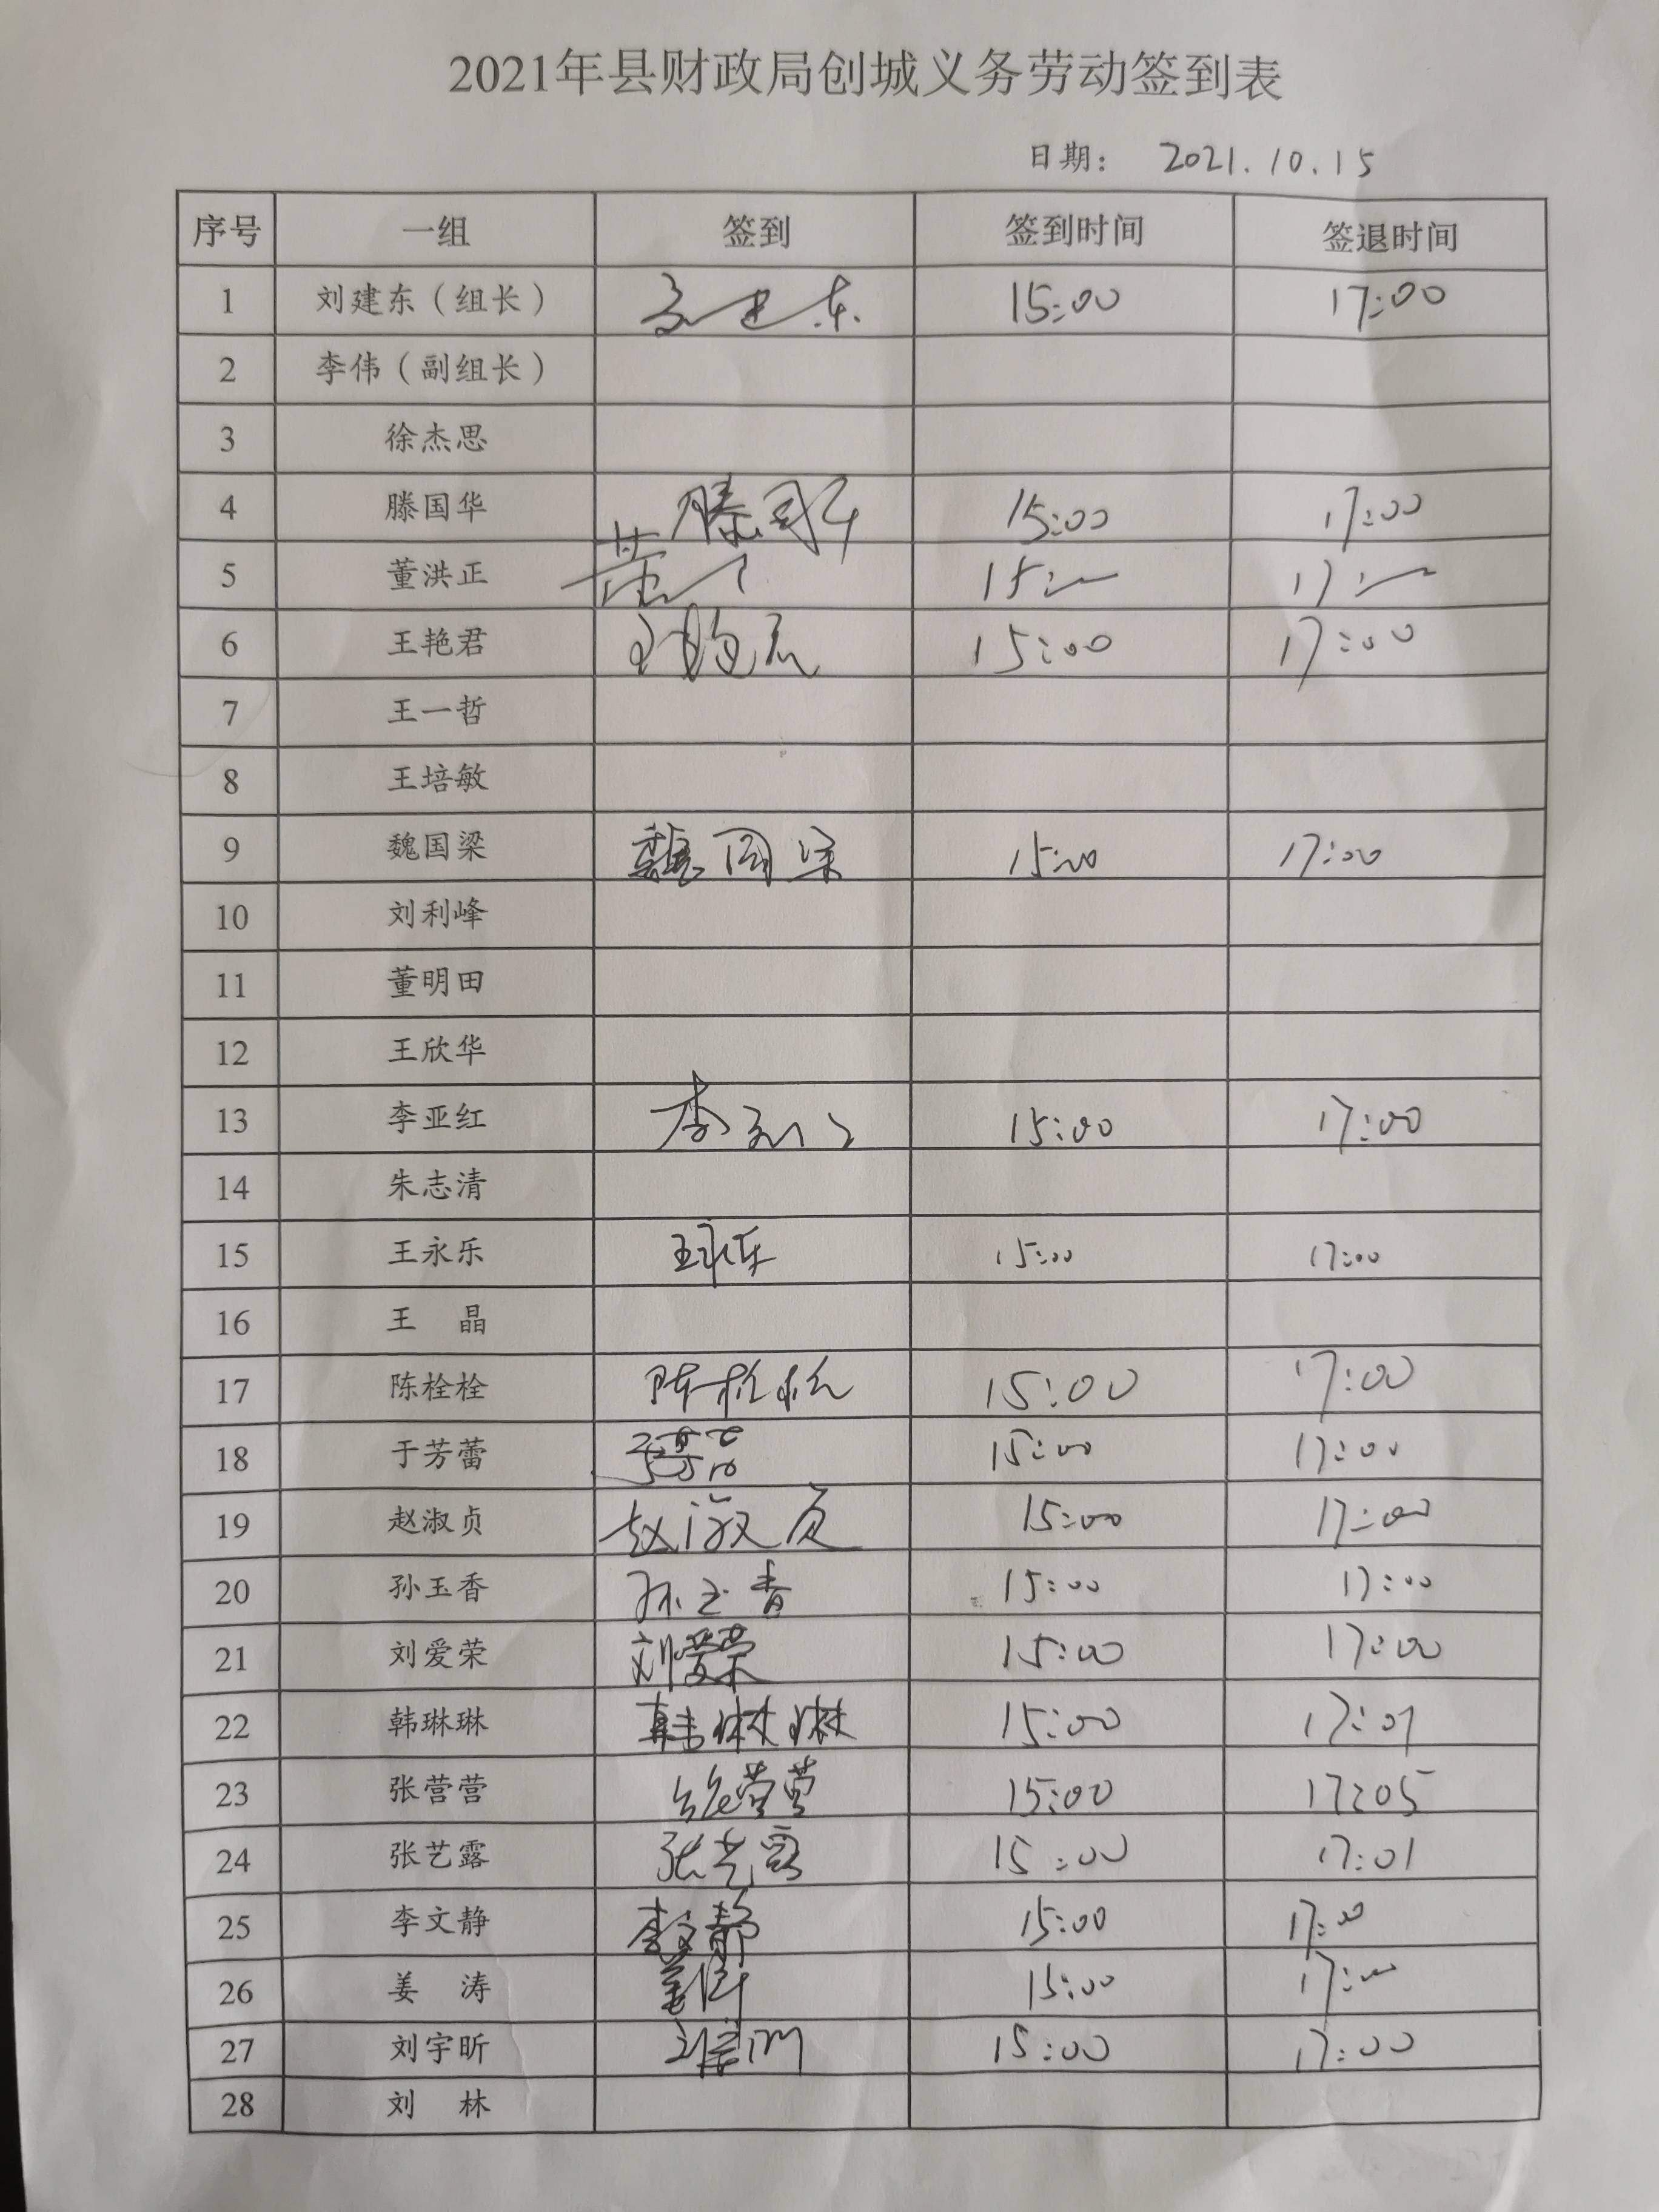 2021年县财政局创城义务劳动签到表
日期： 2021.10.15
序号 一组 签到 签到时间 签退时间
1 刘建东（组长） 刘建东 15:00 17:00
2 李伟（副组长）
3 徐杰思
4 滕国华 滕国华 15:00 17:00
5 董洪正 董 15: 17:
6 王艳君 王艳君 15:00 17:00
7 王一哲
8 王培敏
9 魏国梁 魏国梁 15:00 17:00
10 刘利峰
11 董明田
12 王欣华
13 李亚红 李亚红 15:00 17:00
14 朱志清
15 王永乐 王永乐 15:00 17:00
16 王 晶
17 陈栓栓 陈栓栓 15:00 17:00
18 于芳蕾 于芳蕾 15:00 17:00
19 赵淑贞 赵淑贞 15:00 17:00
20 孙玉香 孙玉香 15:00 17:00
21 刘爱荣 刘爱荣 15:00 17:00
22 韩琳琳 韩琳琳 15:00 17:01
23 张营营 张营营 15:00 17:05
24 张艺露 张艺露 15:00 17:01
25 李文静 李文静 15:00 17:00
26 姜 涛 姜涛 15:00 17:00
27 刘宇昕 刘宇昕 15:00 17:00
28 刘 林